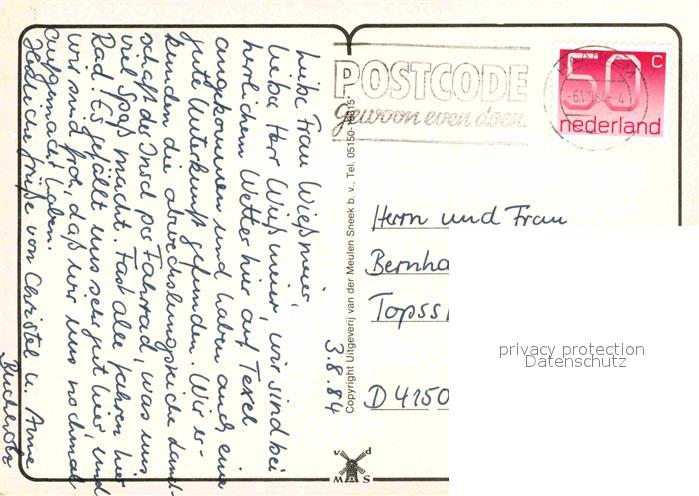 3.8.84
Liebe Frau Wießmeier,
liebe Herr Wießmeier, wir sind bei
herrlichem Wetter hier auf Texel
angekommen und haben auch eine
gute Unterkunft gefunden. Wir er-
kunden die abwechslungsreiche Land-
schaft der Insel per Fahrrad, was uns
viel Spaß macht. Fast alle fahren hier
Rad. Es gefällt uns sehr gut hier, und
wir sind froh, daß wir uns nochmal
aufgemacht haben.
Herzliche Grüße von Christel u. Arne
Buchholz
Copyright Uitgeverij van der Meulen Sneek b.v., Tel. 05150-
POSTCODE
gewoon even doen.
50 c
nederland
Herrn und Frau
Bernha
Topss
D 4150
privacy protection
Datenschutz
v d
M S